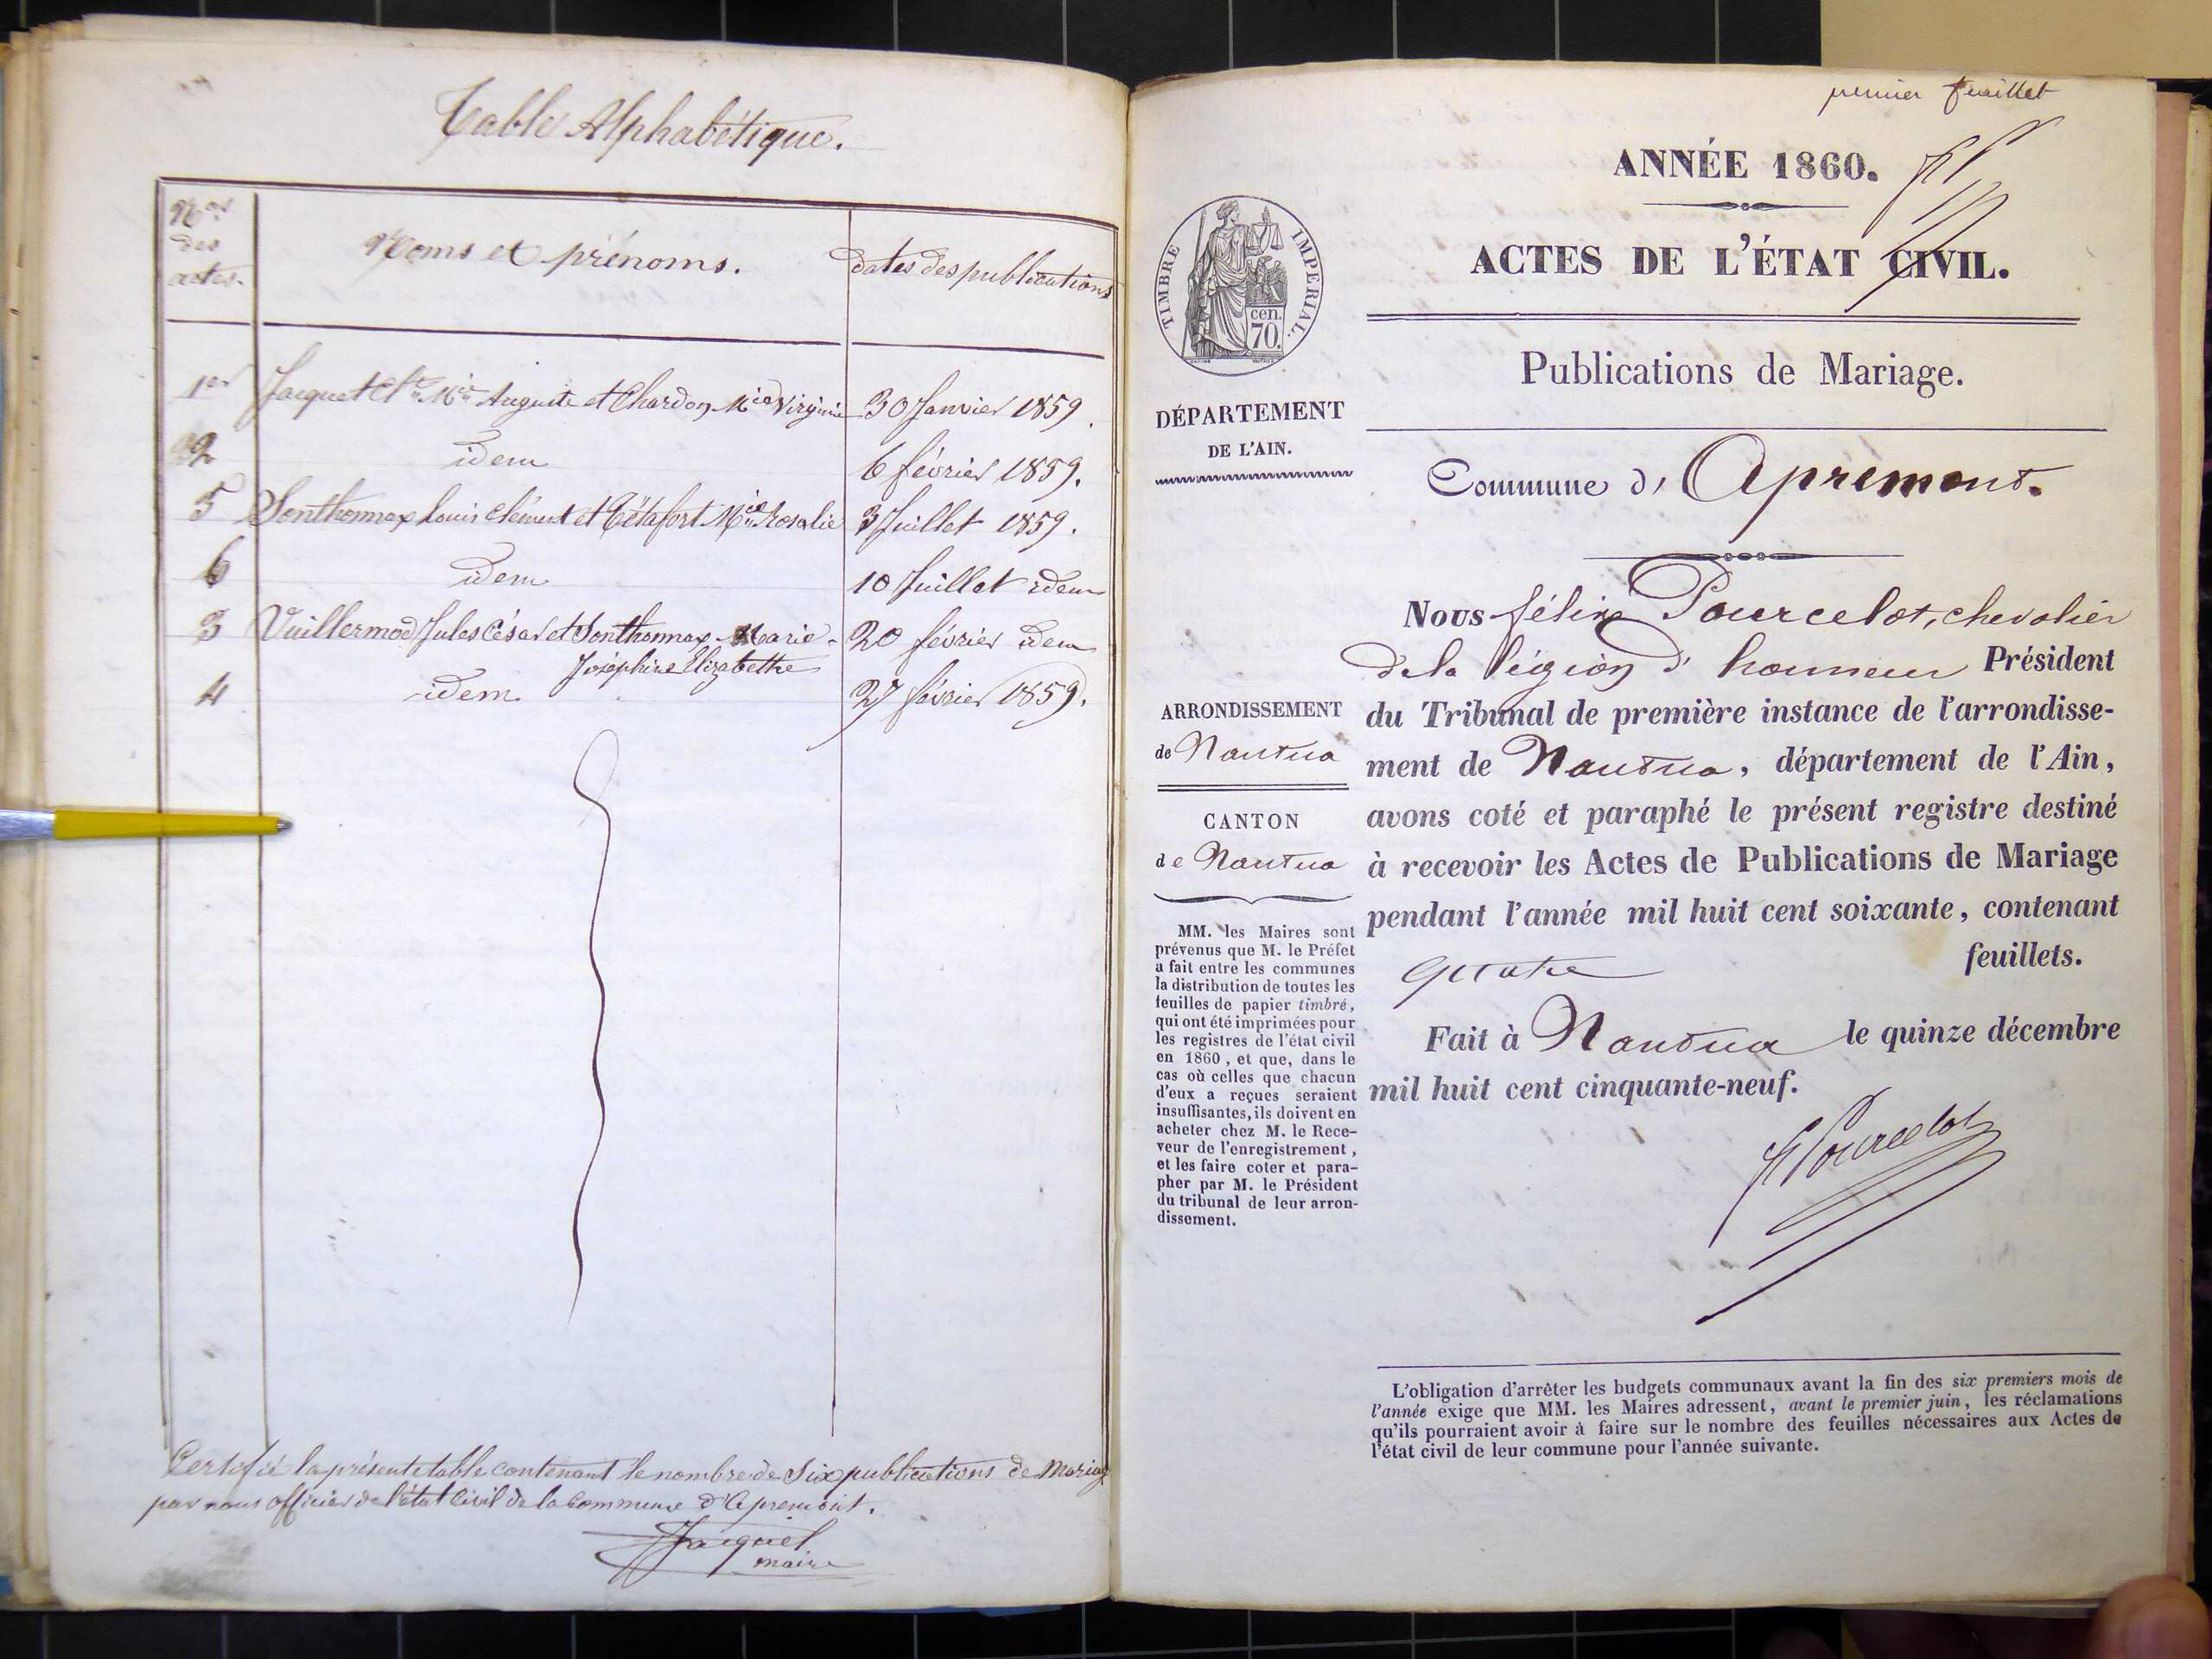 Table Alphabétique.
Nos des actes. Noms et prénoms. dates des publications
1er Jacquet Auguste et Chardon Mie Virginie 30 Janvier 1859.
2 idem 6 février 1859.
5 Sonthonnax Louis Clément et Tétafort Mie Rosalie 3 Juillet 1859.
6 idem 10 Juillet idem
3 Vuillermoz Jules César et Sonthonnax Marie- 20 février idem
Joséphine Elizabethe
4 idem 27 février 1859.
Certifié la présente table contenant le nombre de Six publications de Mariage
par nous officier de l'état Civil de la commune d'Apremont.
Jacquet
maire
premier feuillet
ANNÉE 1860.
ACTES DE L'ÉTAT CIVIL.
TIMBRE IMPERIAL.
cen.
70.
Publications de Mariage.
DÉPARTEMENT
DE L'AIN.
Commune d'Apremont.
ARRONDISSEMENT
de Nantua
CANTON
de Nantua
MM. les Maires sont
prévenus que M. le Préfet
a fait entre les communes
la distribution de toutes les
feuilles de papier timbré,
qui ont été imprimées pour
les registres de l'état civil
en 1860, et que, dans le
cas où celles que chacun
d'eux a reçues seraient
insuffisantes, ils doivent en
acheter chez M. le Rece-
veur de l'enregistrement,
et les faire coter et para-
pher par M. le Président
du tribunal de leur arron-
dissement.
Nous félix Pourcelot, chevalier
de la légion d'honneur Président
du Tribunal de première instance de l'arrondisse-
ment de Nantua, département de l'Ain,
avons coté et paraphé le présent registre destiné
à recevoir les Actes de Publications de Mariage
pendant l'année mil huit cent soixante, contenant
quatre feuillets.
Fait à Nantua le quinze décembre
mil huit cent cinquante-neuf.
F Pourcelot
L'obligation d'arrêter les budgets communaux avant la fin des six premiers mois de
l'année exige que MM. les Maires adressent, avant le premier juin, les réclamations
qu'ils pourraient avoir à faire sur le nombre des feuilles nécessaires aux Actes de
l'état civil de leur commune pour l'année suivante.